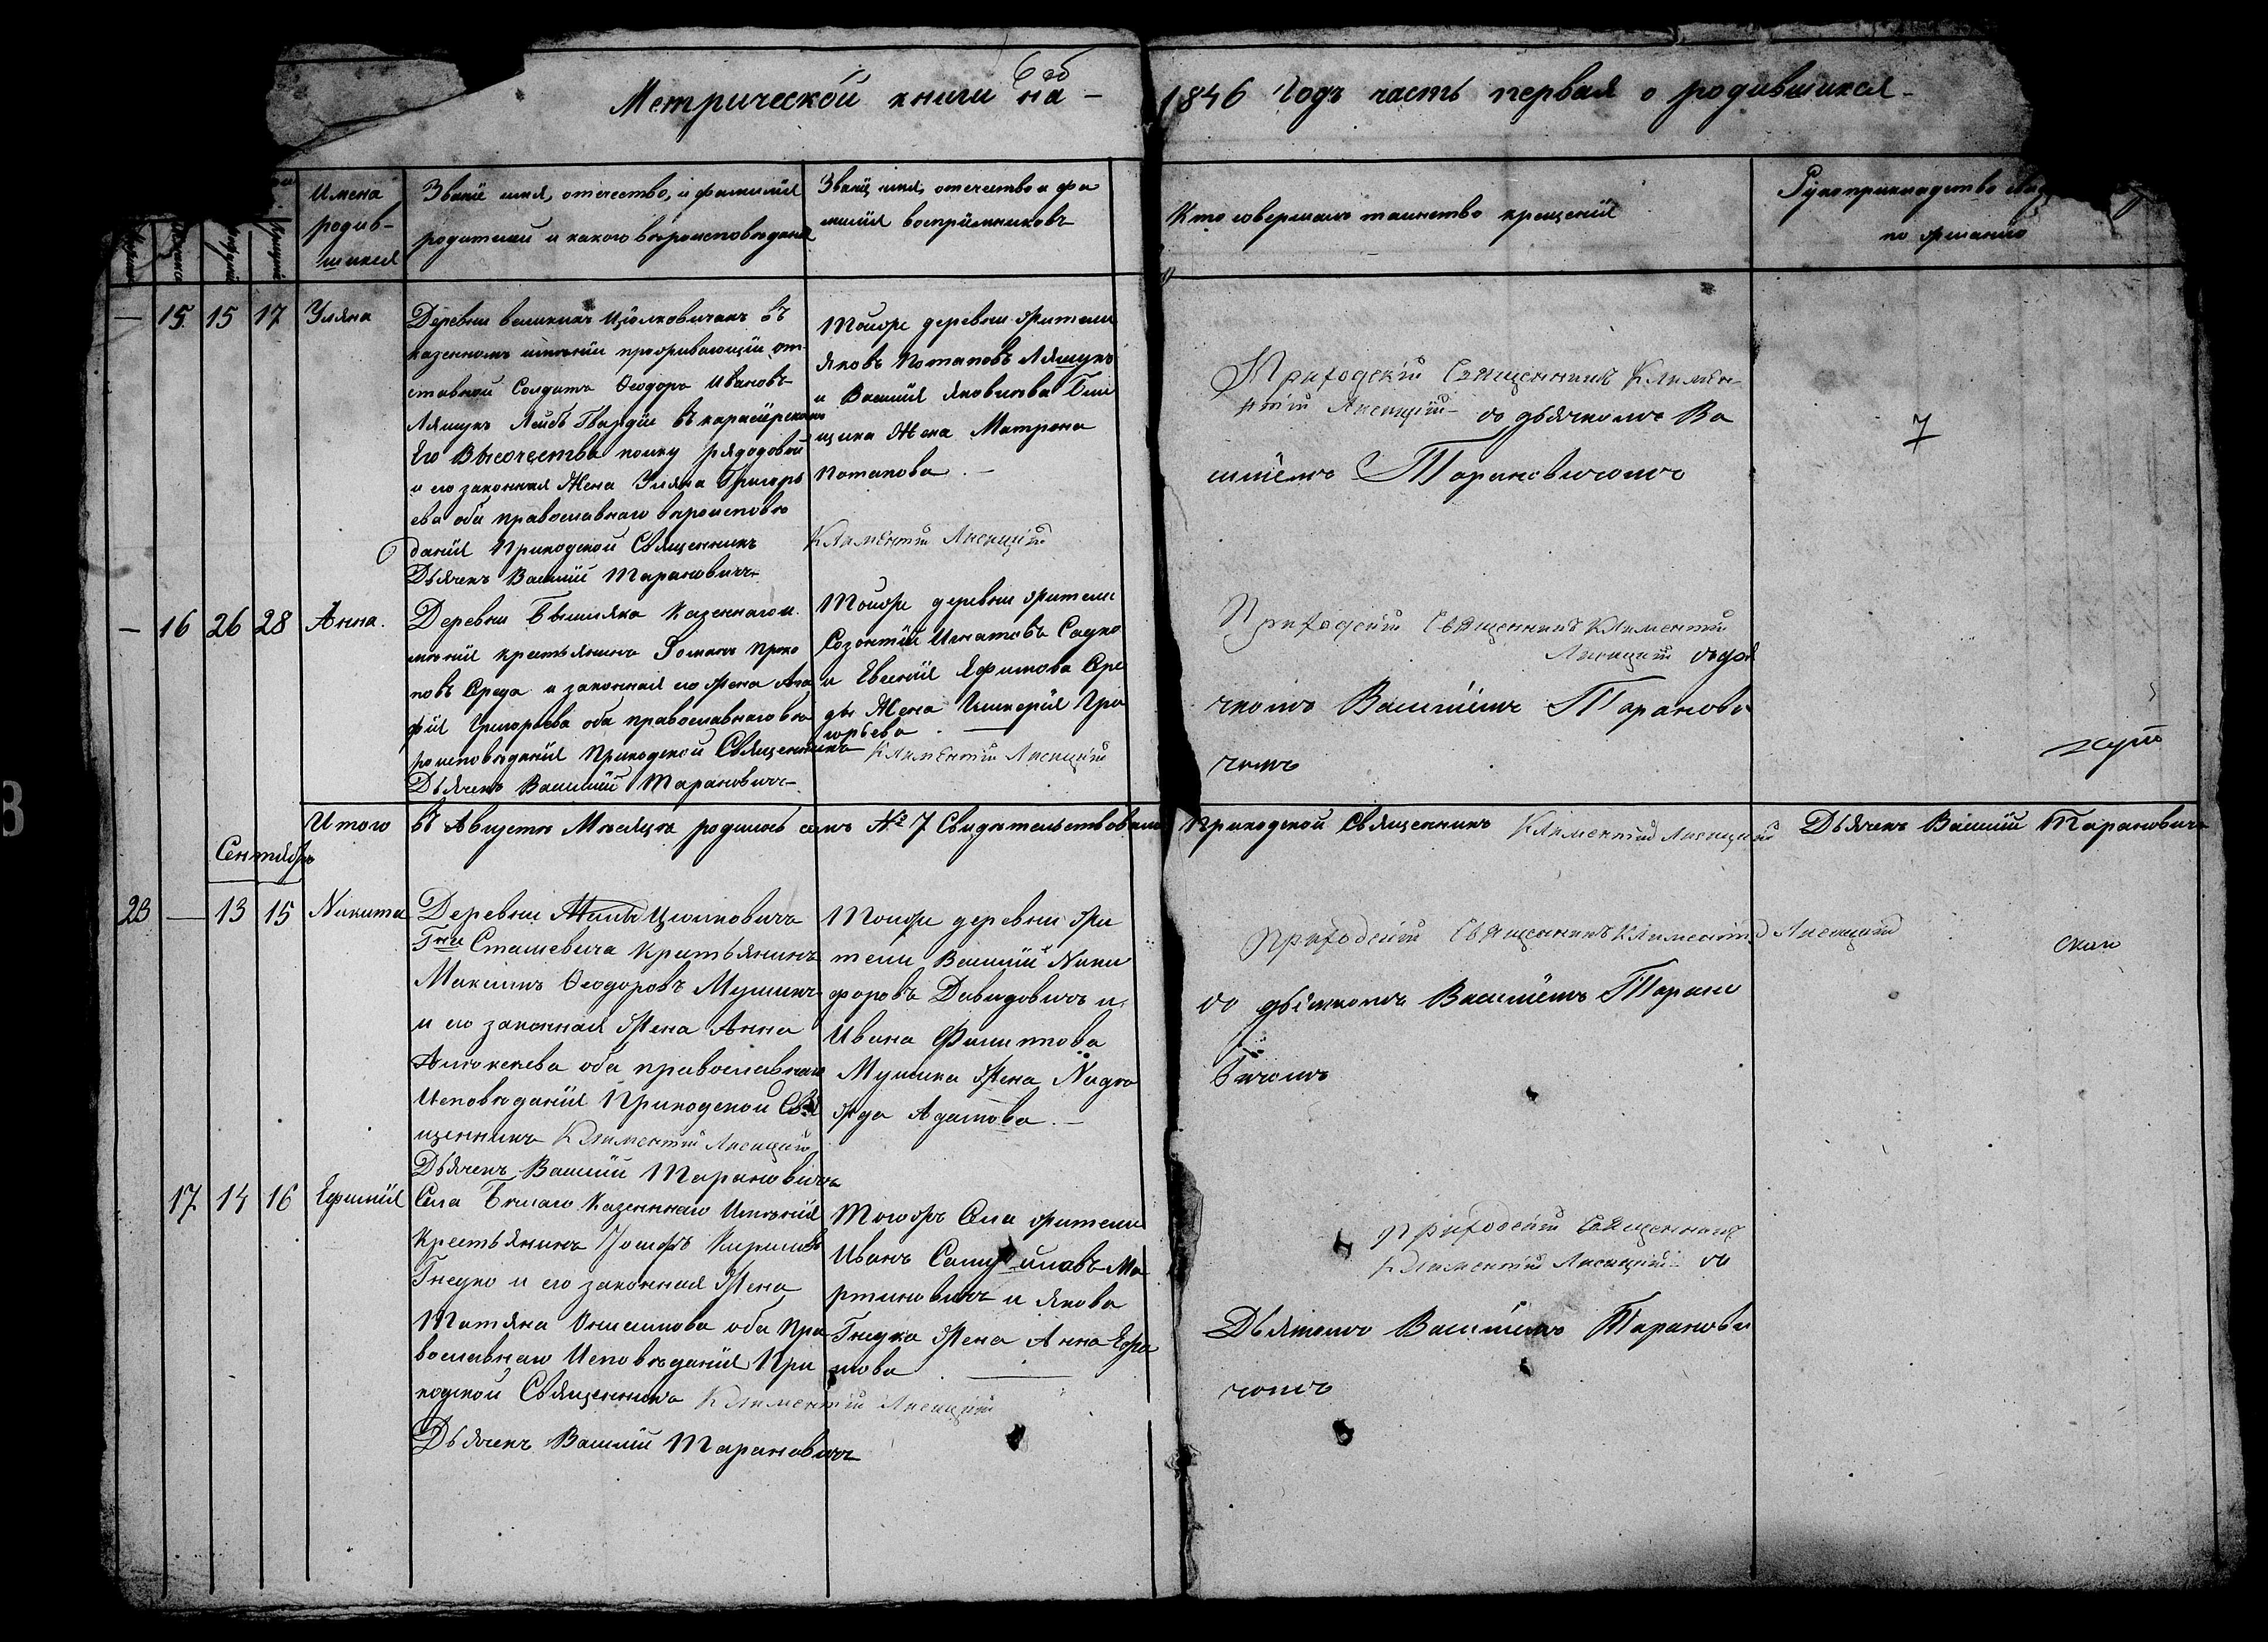 6 об
Метрической книги на – 1846 Годъ часть первая о родившихся –
Имена родив-шихся
Званіе имя, отечество, и фамилія
родителей и какого вѣроисповѣданія
Званіе имя, отечество и фа
милія воспріемниковъ
Кто совершалъ таинство крещенія
Рукоприкладство
по желанію
— 15 15 17 Уляна
Деревни великихъ Цѣлковичахъ въ
казенномъ имѣніи проживающій от-
ставной Солдатъ Ѳеодоръ Ивановъ
Ляшукъ Лейбъ Гвардіи Въ
Его Высочества полку рядодовой
и его законная Жена Уляна Григорь
ева оба православнаго вѣроисповѣ
данія Приходской Священникъ
Дьячекъ Василій Тарановичъ
Тойже деревни жители
Яковъ Потаповъ Ляшукъ
и Василія Яковлева
Жена Матрона
Потапова. —
Климентій Лисицкій
Приходскій Священникъ Климен-
тій Лисицкій со дьячкомъ Ва
силіемъ Тарановичомъ
7
— 16 26 28 Анна.
Деревни Казеннаго и
мѣнія крестьянинъ Романъ Проко
повъ Среда и законная его Жена Ага
фія Григорьева оба православнаго вѣ
роисповѣданія Приходской Священникъ
Климентій Лисицкій
Дьячекъ Василій Тарановичъ
Тойже деревни жители
Созонтій Игнатовъ
и Евгенія Ефимова Сре
ды Жена Гликерія Гри
горьева. —
Приходскій Священникъ Климентій
Лисицкій съ дья
чкомъ Василіемъ Таранови
чемъ
Итого въ Августѣ Мѣсяцѣ родилось семь № 7 Свидѣтельствовали Приходской Священникъ Климентій Лисицкій Дьячекъ Василій Тарановичъ
Сентябрь
23 — 13 15 Никита
Деревни Цѣлковичъ
Гни Сташевича Крестьянинъ
Максимъ Ѳеодоровъ Мушикъ
и его законная Жена Анна
оба православнаго
Исповѣданія Приходской Свя
щенникъ Климентій Лисицкій
Дьячекъ Василій Тарановичъ
Тойже деревни жи
тели Василій Ники
форовъ Давидовичъ и
Ивана Филипова
Мушика Жена
Адамова. —
Приходскій Священникъ Климентій Лисицкій
со дьячкомъ Василіемъ Тарано
вичомъ
17 14 16 Ефимія
Села Бѣлаго Казеннаго Имѣнія
Крестьянинъ Іосифъ Кириловъ
Гнедко и его законная Жена
Татяна Онисимова оба Пра
вославнаго Исповѣданія При
ходской Священникъ Климентій Лисицкій
Дьячекъ Василій Тарановичъ
Тогожъ Села жители
Иванъ Самуйловъ Ма
ртиновичъ и Якова
Гнедка Жена Анна Ефи
мова. —
Приходскій Священникъ
Климентій Лисицкій со
Дьячкомъ Василіемъ Таранови
чомъ